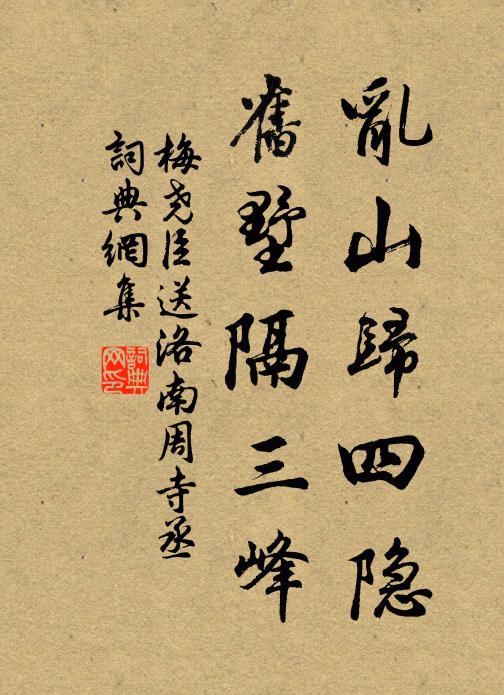 亂山歸四隐
舊墅隔三峰
梅尧臣送洛南周寺丞
詞典網集
詞典網印